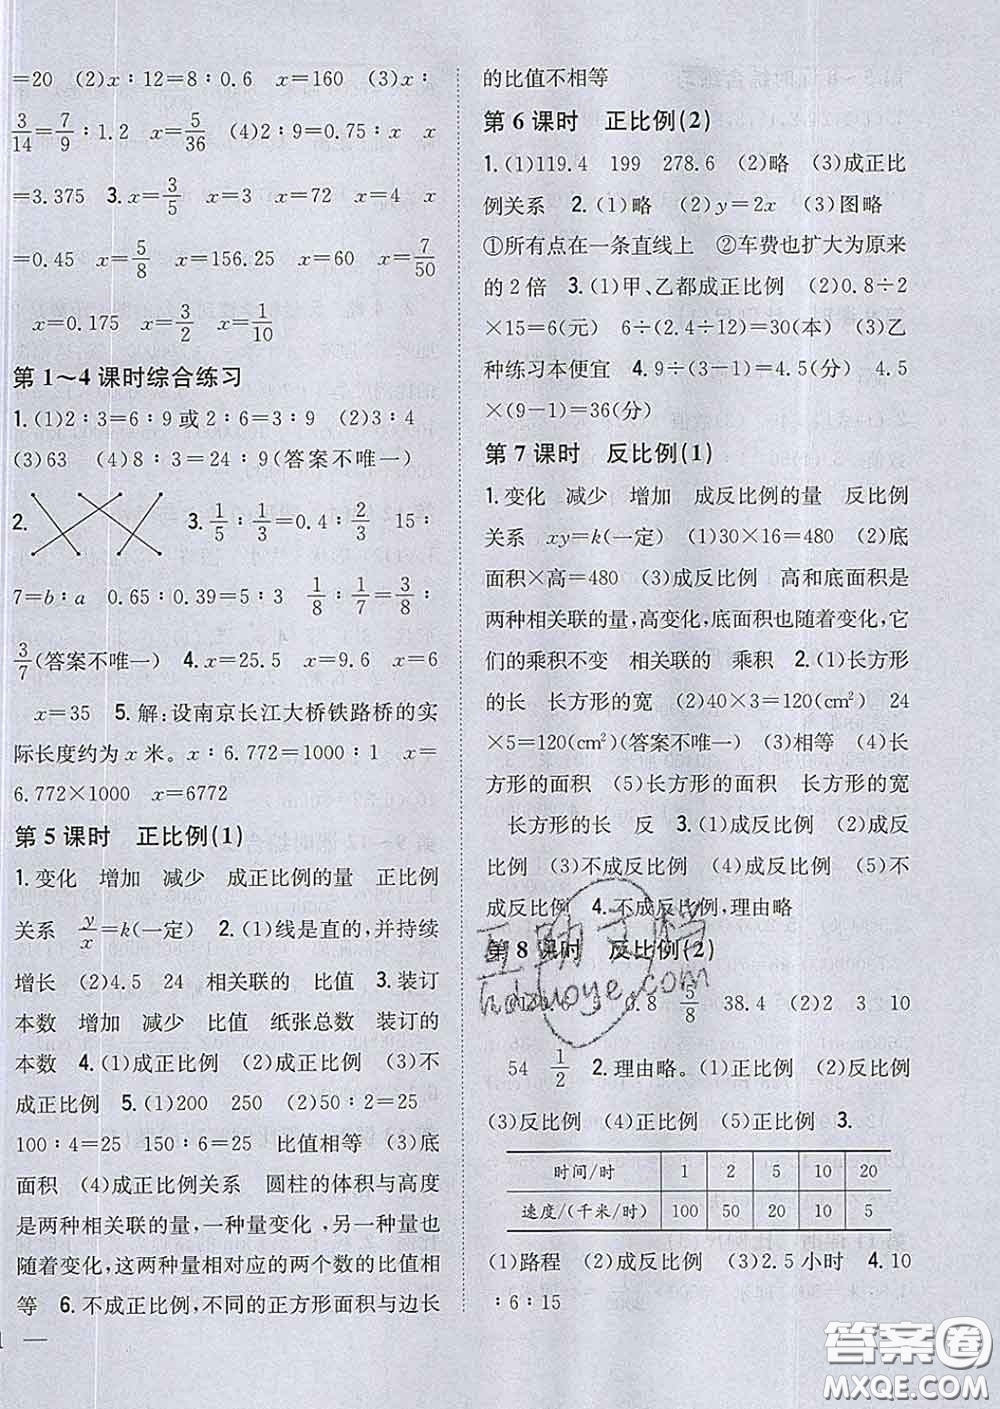 =20　(2)x∶12=8∶0.6　x=160　(3)x∶
3/14=7/9∶1.2　x=5/36　(4)2∶9=0.75∶x　x
=3.375　3.x=3/5　x=3　x=72　x=4　x
=0.45　x=5/8　x=156.25　x=60　x=7/50
x=0.175　x=3/2　x=1/10
第1~4课时综合练习
1.(1)2∶3=6∶9或2∶6=3∶9　(2)3∶4
(3)63　(4)8∶3=24∶9(答案不唯一)
2.　3.1/5∶1/3=0.4∶2/3　15∶
7=b∶a　0.65∶0.39=5∶3　1/8∶1/7=3/8∶
3/7(答案不唯一)　4.x=25.5　x=9.6　x=6
x=35　5.解:设南京长江大桥铁路桥的实
际长度约为x米。x∶6.772=1000∶1　x=
6.772×1000　x=6772
第5课时　正比例(1)
1.变化　增加　减少　成正比例的量　正比例
关系　y/x=k(一定)　2.(1)线是直的,并持续
增长　(2)4.5　24　相关联的　比值　3.装订
本数　增加　减少　比值　纸张总数　装订的
本数　4.(1)成正比例　(2)成正比例　(3)不
成正比例　5.(1)200　250　(2)50∶2=25
100∶4=25　150∶6=25　比值相等　(3)底
面积　(4)成正比例关系　圆柱的体积与高度
是两种相关联的量,一种量变化,另一种量也
随着变化,这两种量相对应的两个数的比值相
等　6.不成正比例,不同的正方形面积与边长
的比值不相等
第6课时　正比例(2)
1.(1)119.4　199　278.6　(2)略　(3)成正比
例关系　2.(1)略　(2)y=2x　(3)图略
①所有点在一条直线上　②车费也扩大为原来
的2倍　3.(1)甲、乙都成正比例　(2)0.8÷2
×15=6(元)　6÷(2.4÷12)=30(本)　(3)乙
种练习本便宜　4.9÷(3−1)=4.5(分)　4.5
×(9−1)=36(分)
第7课时　反比例(1)
1.变化　减少　增加　成反比例的量　反比例
关系　xy=k(一定)　2.(1)30×16=480　(2)底
面积×高=480　(3)成反比例　高和底面积是
两种相关联的量,高变化,底面积也随着变化,它
们的乘积不变　相关联的　乘积　2.(1)长方形
的长　长方形的宽　(2)40×3=120(cm²)　24
×5=120(cm²)(答案不唯一)　(3)相等　(4)长
方形的面积　(5)长方形的面积　长方形的宽
长方形的长　反　3.(1)成反比例　(2)成反
比例　(3)不成反比例　(4)成反比例　(5)不
成反比例　4.不成反比例,理由略
第8课时　反比例(2)
38.4　(2)2　3　10
54　1/2　2.理由略。(1)正比例　(2)反比例
(3)反比例　(4)正比例　(5)正比例　3.
时间/时　1　2　5　10　20
速度/(千米/时)　100　50　20　10　5
(1)路程　(2)成反比例　(3)2.5小时　4.10
∶6∶15
互助文档
hdzuoye.com
答案圈
MXQE.COM